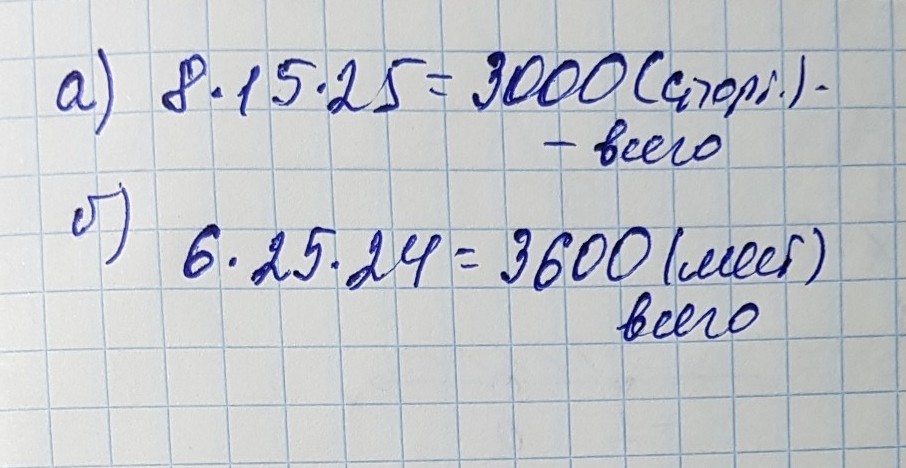 а) 8·15·25=3000(сторі.)-
- всего
б)
6·25·24=3600(мест)
всего